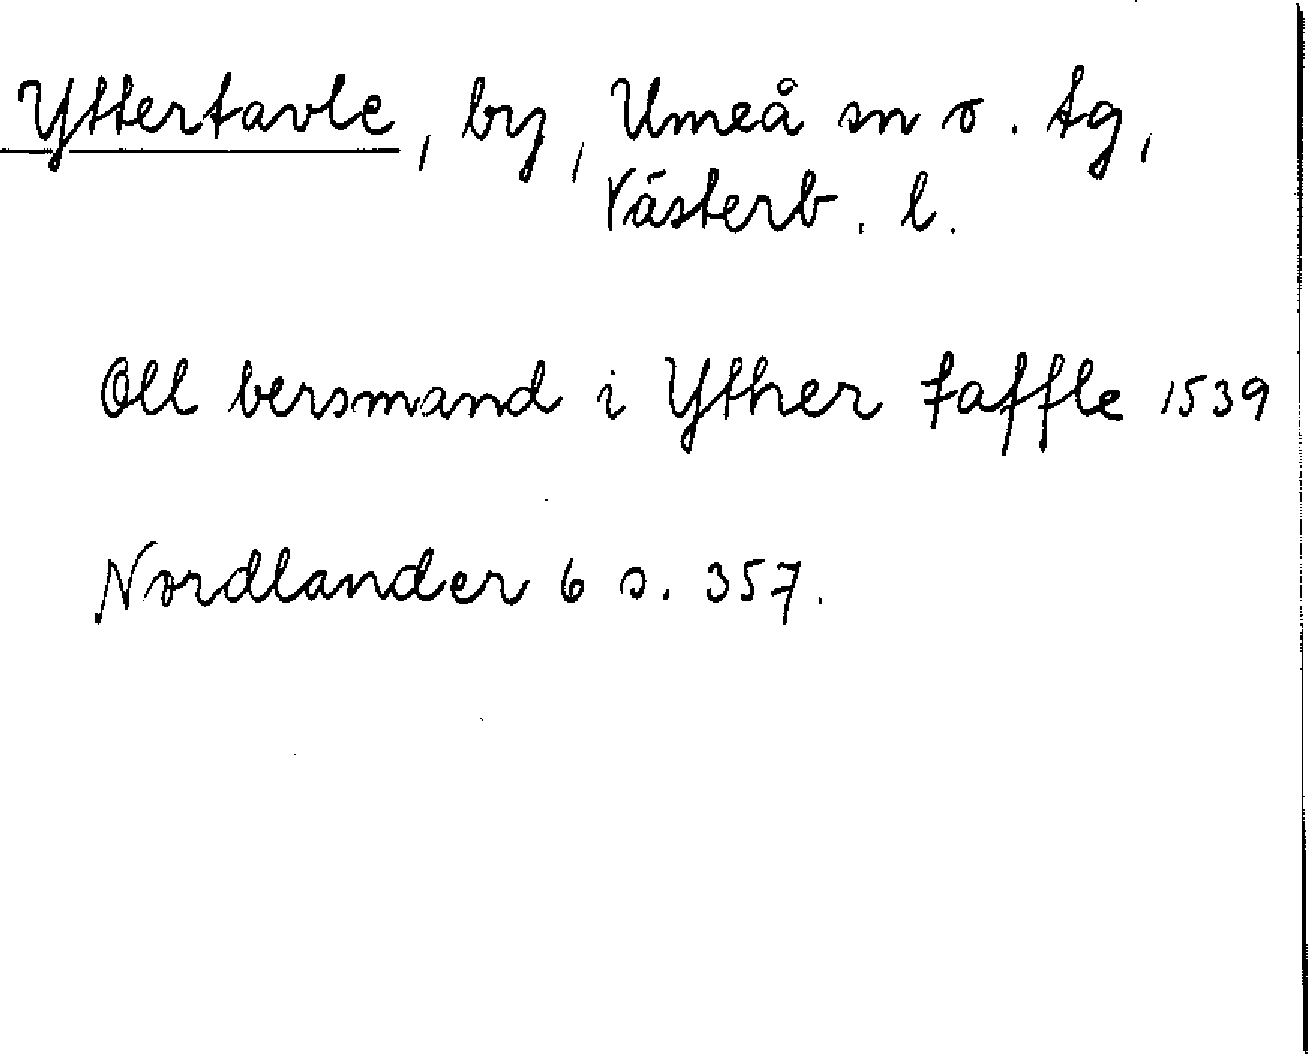 Yttertavle, by, Umeå sn o. tg,
Västerb. l.
Oll bersmand i Yther taffle 1539
Nordlander 6 s. 357.